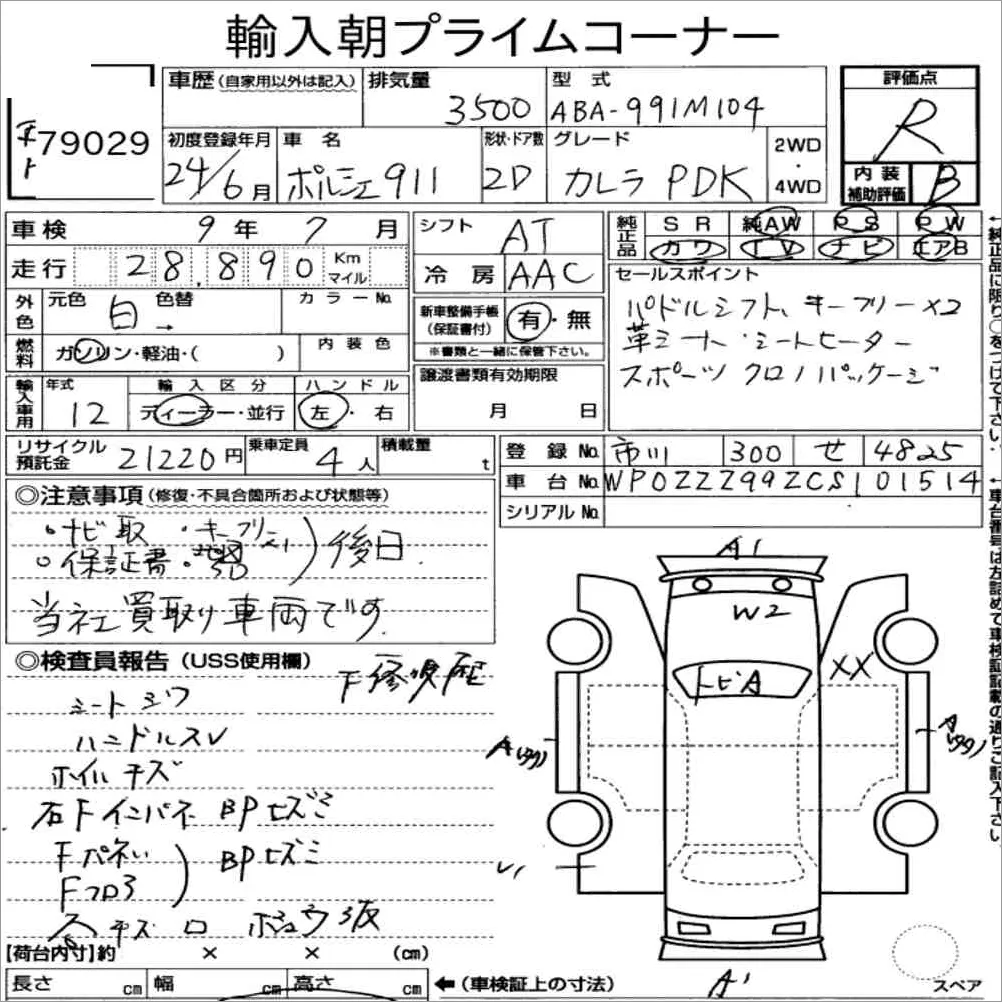 輸入朝プライムコーナー
79029
車歴(自家用以外は記入) 排気量 3500 型式 ABA-991M104
初度登録年月 24/6月 車名 ポルシェ911 形状・ドア数 2D グレード カレラ PDK 2WD・4WD
評価点 R
内装補助評価 B
車検 9年 7月
走行 28,890 Km マイル
外色 元色 白→ 色替 カラーNo.
燃料 ガソリン・軽油・( ) 内装色
輸入車用 年式 12 輸入区分 ディーラー・並行 ハンドル 左・右
シフト AT
冷房 AAC
新車整備手帳(保証書付) 有・無
※書類と一緒に保管下さい。
譲渡書類有効期限
月 日
純正品 SR 純AW PS PW
カワ TV ナビ エアB
セールスポイント
パドルシフト、キーフリー×2
革シート・シートヒーター
スポーツクロノパッケージ
←純正品に限り○をつけて下さい。
リサイクル預託金 21220円 乗車定員 4人 積載量 t
登録No. 市川 300 せ 4825
車台No. WP0ZZZ99ZCS101514
シリアルNo.
←車台番号は左詰めで車検証記載の通りご記入下さい
◎注意事項(修復・不具合箇所および状態等)
・ナビ取・キーフリー×1
・保証書・)後日
当社買取り車両です
◎検査員報告(USS使用欄)
F修復歴
シートシワ
ハンドルスレ
ホイルキズ
右Fインパネ BPヒズミ
Fパネい
Fフロア
)BPヒズミ
キズ
A1
W2
トビA
XX
A
A
A1
【荷台内寸】約 × × (cm)
長さ cm 幅 cm 高さ cm ←(車検証上の寸法)
スペア